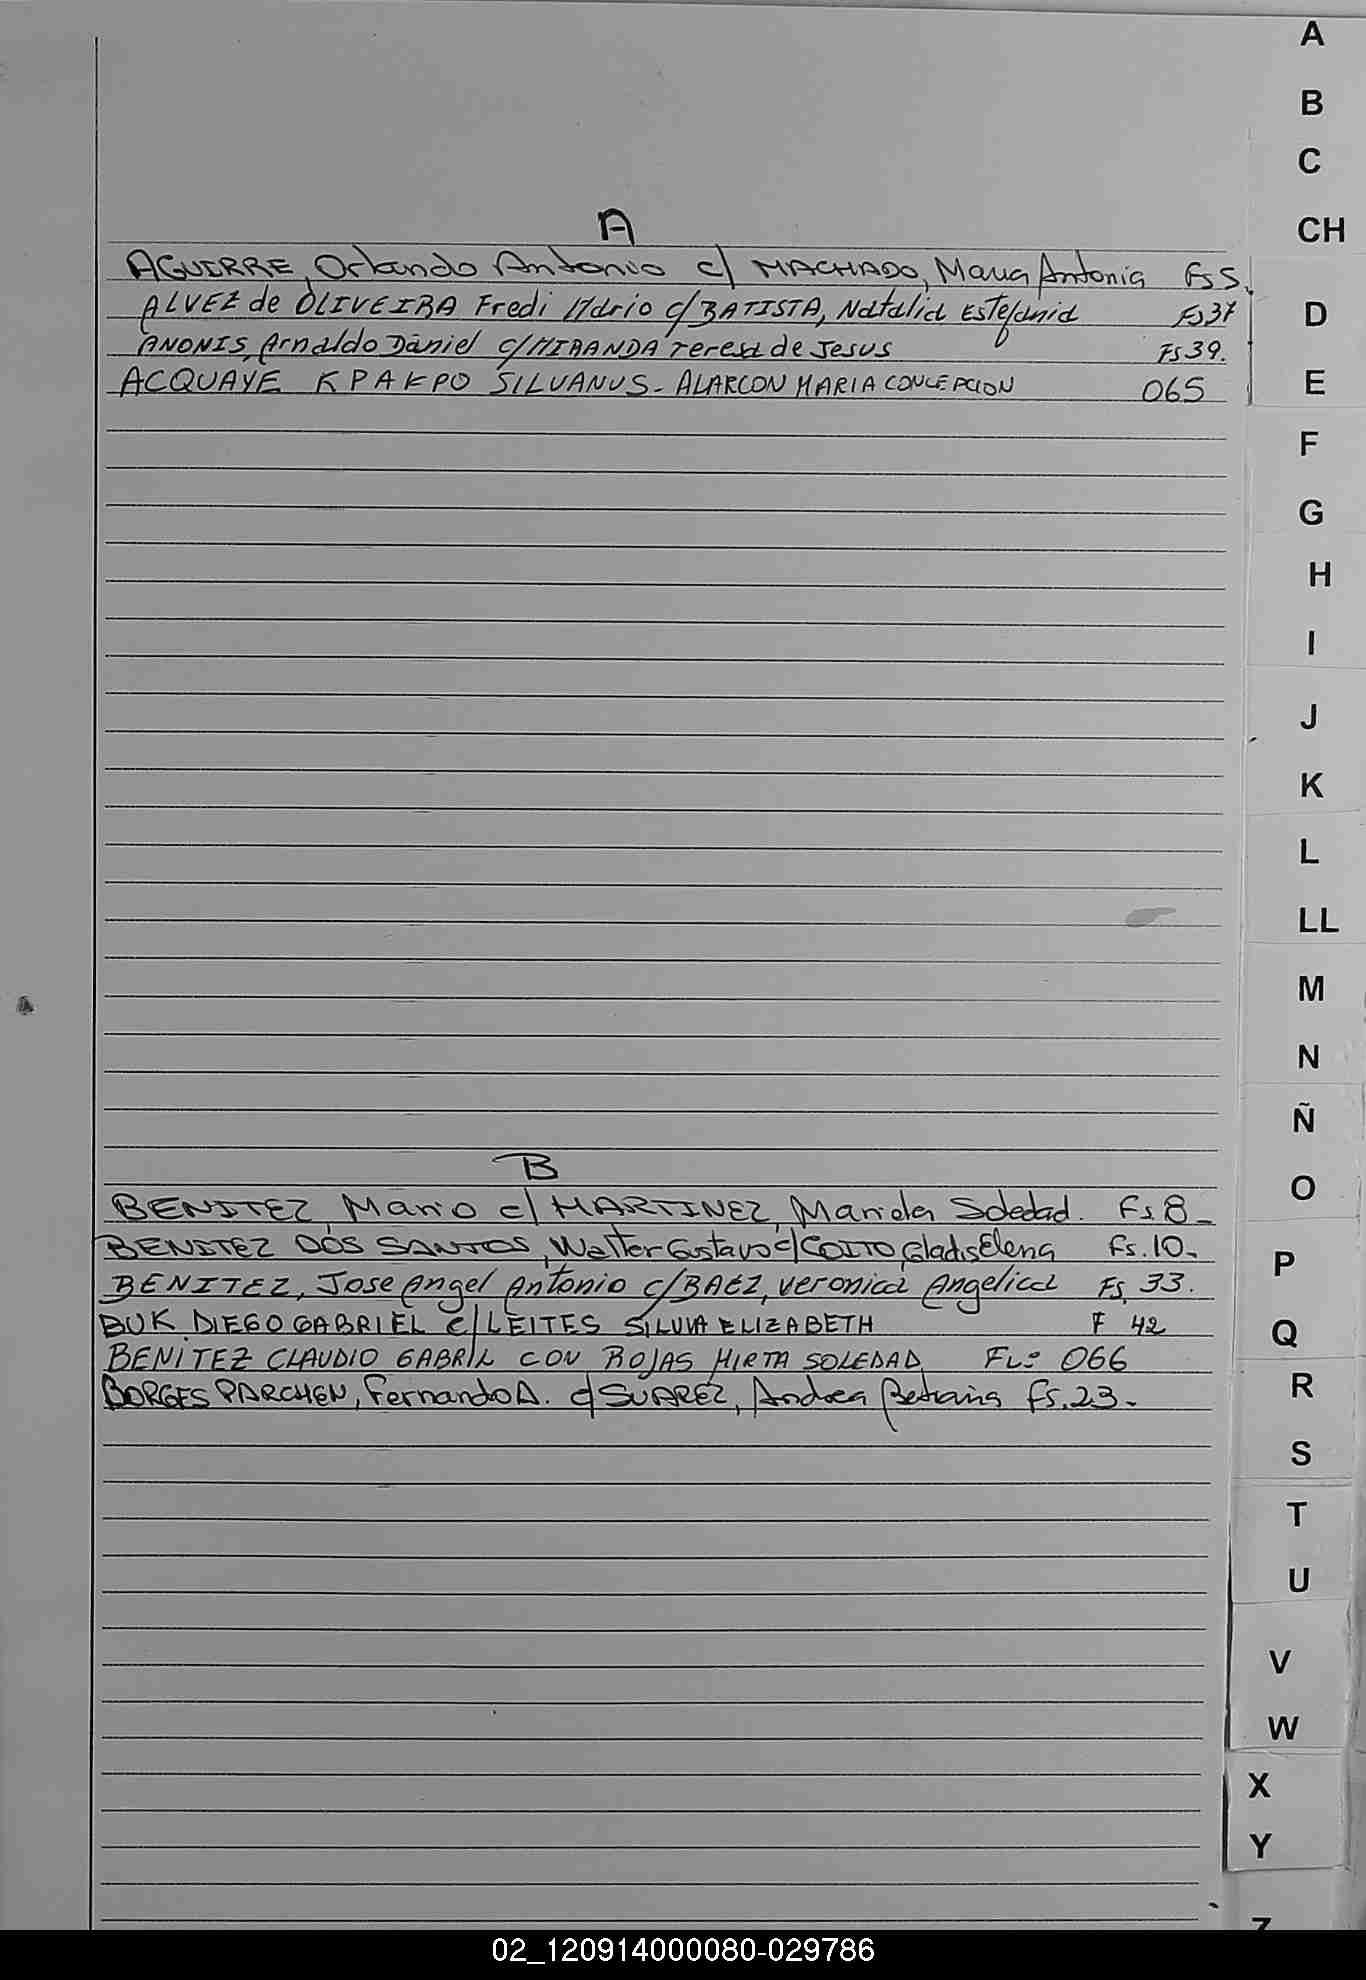 A
AGUIRRE, Orlando Antonio c/ MACHADO, Maria Antonia Fs 5.
ALVEZ de OLIVEIRA Fredi Ilario c/ BATISTA, Natalia Estefania Fs 37
ANONIS, Arnaldo Daniel c/ MIRANDA Teresa de Jesus Fs 39.
ACQUAYE KPAKPO SILVANUS - ALARCON MARIA CONCEPCION 065
B
BENITEZ, Mario c/ MARTINEZ, Mariela Soledad. Fs. 8_
BENITEZ DOS SANTOS, Walter Gustavo c/ COITO, Gladis Elena Fs. 10_
BENITEZ, Jose Angel Antonio c/ BAEZ, Veronica Angelica Fs. 33.
BUK DIEGO GABRIEL c/ LEITES SILVIA ELIZABETH F 42
BENITEZ CLAUDIO GABRIL CON ROJAS MIRTA SOLEDAD FLº 066
BORGES PARCHEN, Fernando A. c/ SUAREZ, Andrea Fs. 23_
A
B
C
CH
D
E
F
G
H
I
J
K
L
LL
M
N
Ñ
O
P
Q
R
S
T
U
V
W
X
Y
Z
02_120914000080-029786